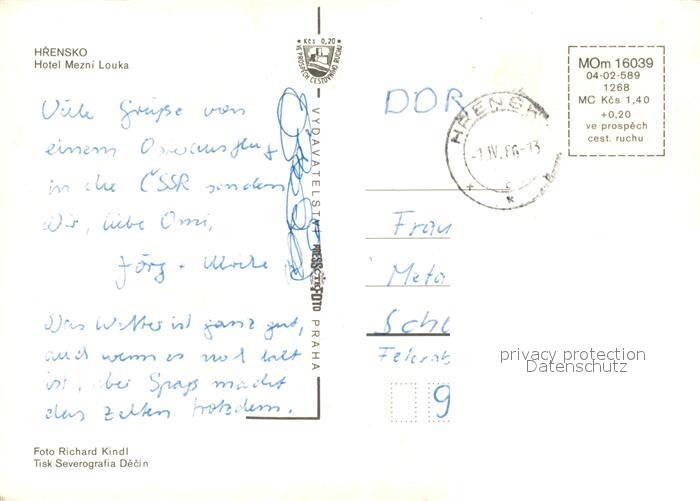 HŘENSKO
Hotel Mezní Louka
Viele Grüße von
einem Osterausflug
in die ČSSR senden
Wir, liebe Omi,
Jörg + Ulrike
Das Wetter ist ganz gut,
auch wenn es noch kalt
ist, aber Spaß macht
das Zelten trotzdem.
Foto Richard Kindl
Tisk Severografia Děčín
Kčs 0,20
VE PROSPĚCH CESTOVNÍHO RUCHU
VYDAVATELSTVÍ PRESSFOTO PRAHA
DDR
HŘENSK
-1.IV.86-13
MOm 16039
04-02-589
1268
MC Kčs 1,40
+0,20
ve prospěch
cest. ruchu
Frau
Meta
Sche
9
privacy protection
Datenschutz